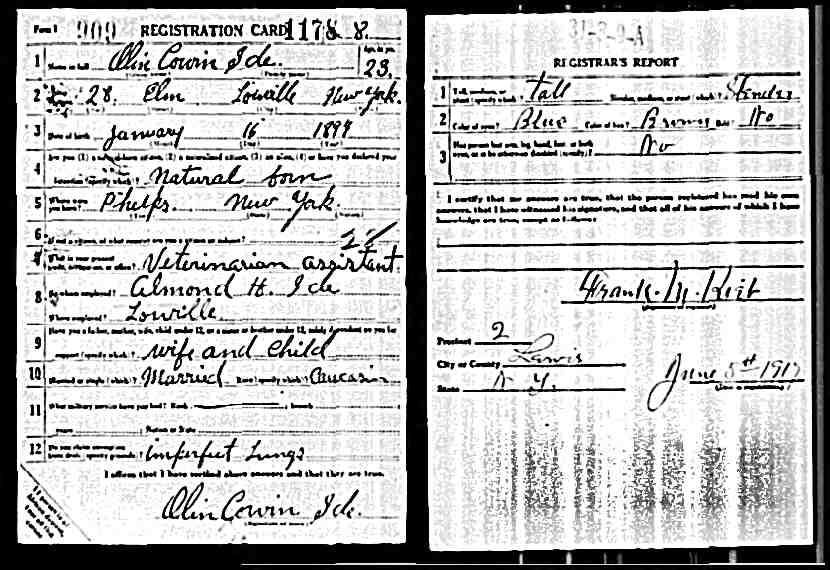 Form 1 909 REGISTRATION CARD 1178 8.
1 Name in full Olin Cowin Ide. Age, in yrs. 23.
2 28. Elm Lowville New York.
3 Date of birth January 16 1894
4 Are you (1) a natural-born citizen, (2) a naturalized citizen, (3) an alien, (4) or have you declared your
intention (specify which)? Natural born
5 Where were you born? Phelps. New York.
6 If not a citizen, of what country are you a citizen or subject?
What is your present trade, occupation, or office? Veterinarian assistant
8 By whom employed? Almond H. Ide
Where employed? Lowville.
9 Have you a father, mother, wife, child under 12, or a sister or brother under 12, solely dependent on you for
support (specify which)? wife and child
10 Married or single (which)? Married Race (specify which)? Caucasin
11 What military service have you had? Rank ; branch
years ; Nation or State
12 Do you claim exemption from draft (specify grounds)? imperfect Lungs
I affirm that I have verified above answers and that they are true.
Olin Cowin Ide.
31-2-9-A
REGISTRAR'S REPORT
1 Tall, medium, or short (specify which)? Tall Slender, medium, or stout (which)? Slender
2 Color of eyes? Blue Color of hair? Brown Bald? No
3 Has person lost arm, leg, hand, foot, or both
eyes, or is he otherwise disabled (specify)? No
I certify that my answers are true, that the person registered has read his own
answers, that I have witnessed his signature, and that all of his answers of which I have
knowledge are true, except as follows:
Frank
Precinct 2
City or County Lewis
State N. Y.
June 5th 1917
(Date of registration)